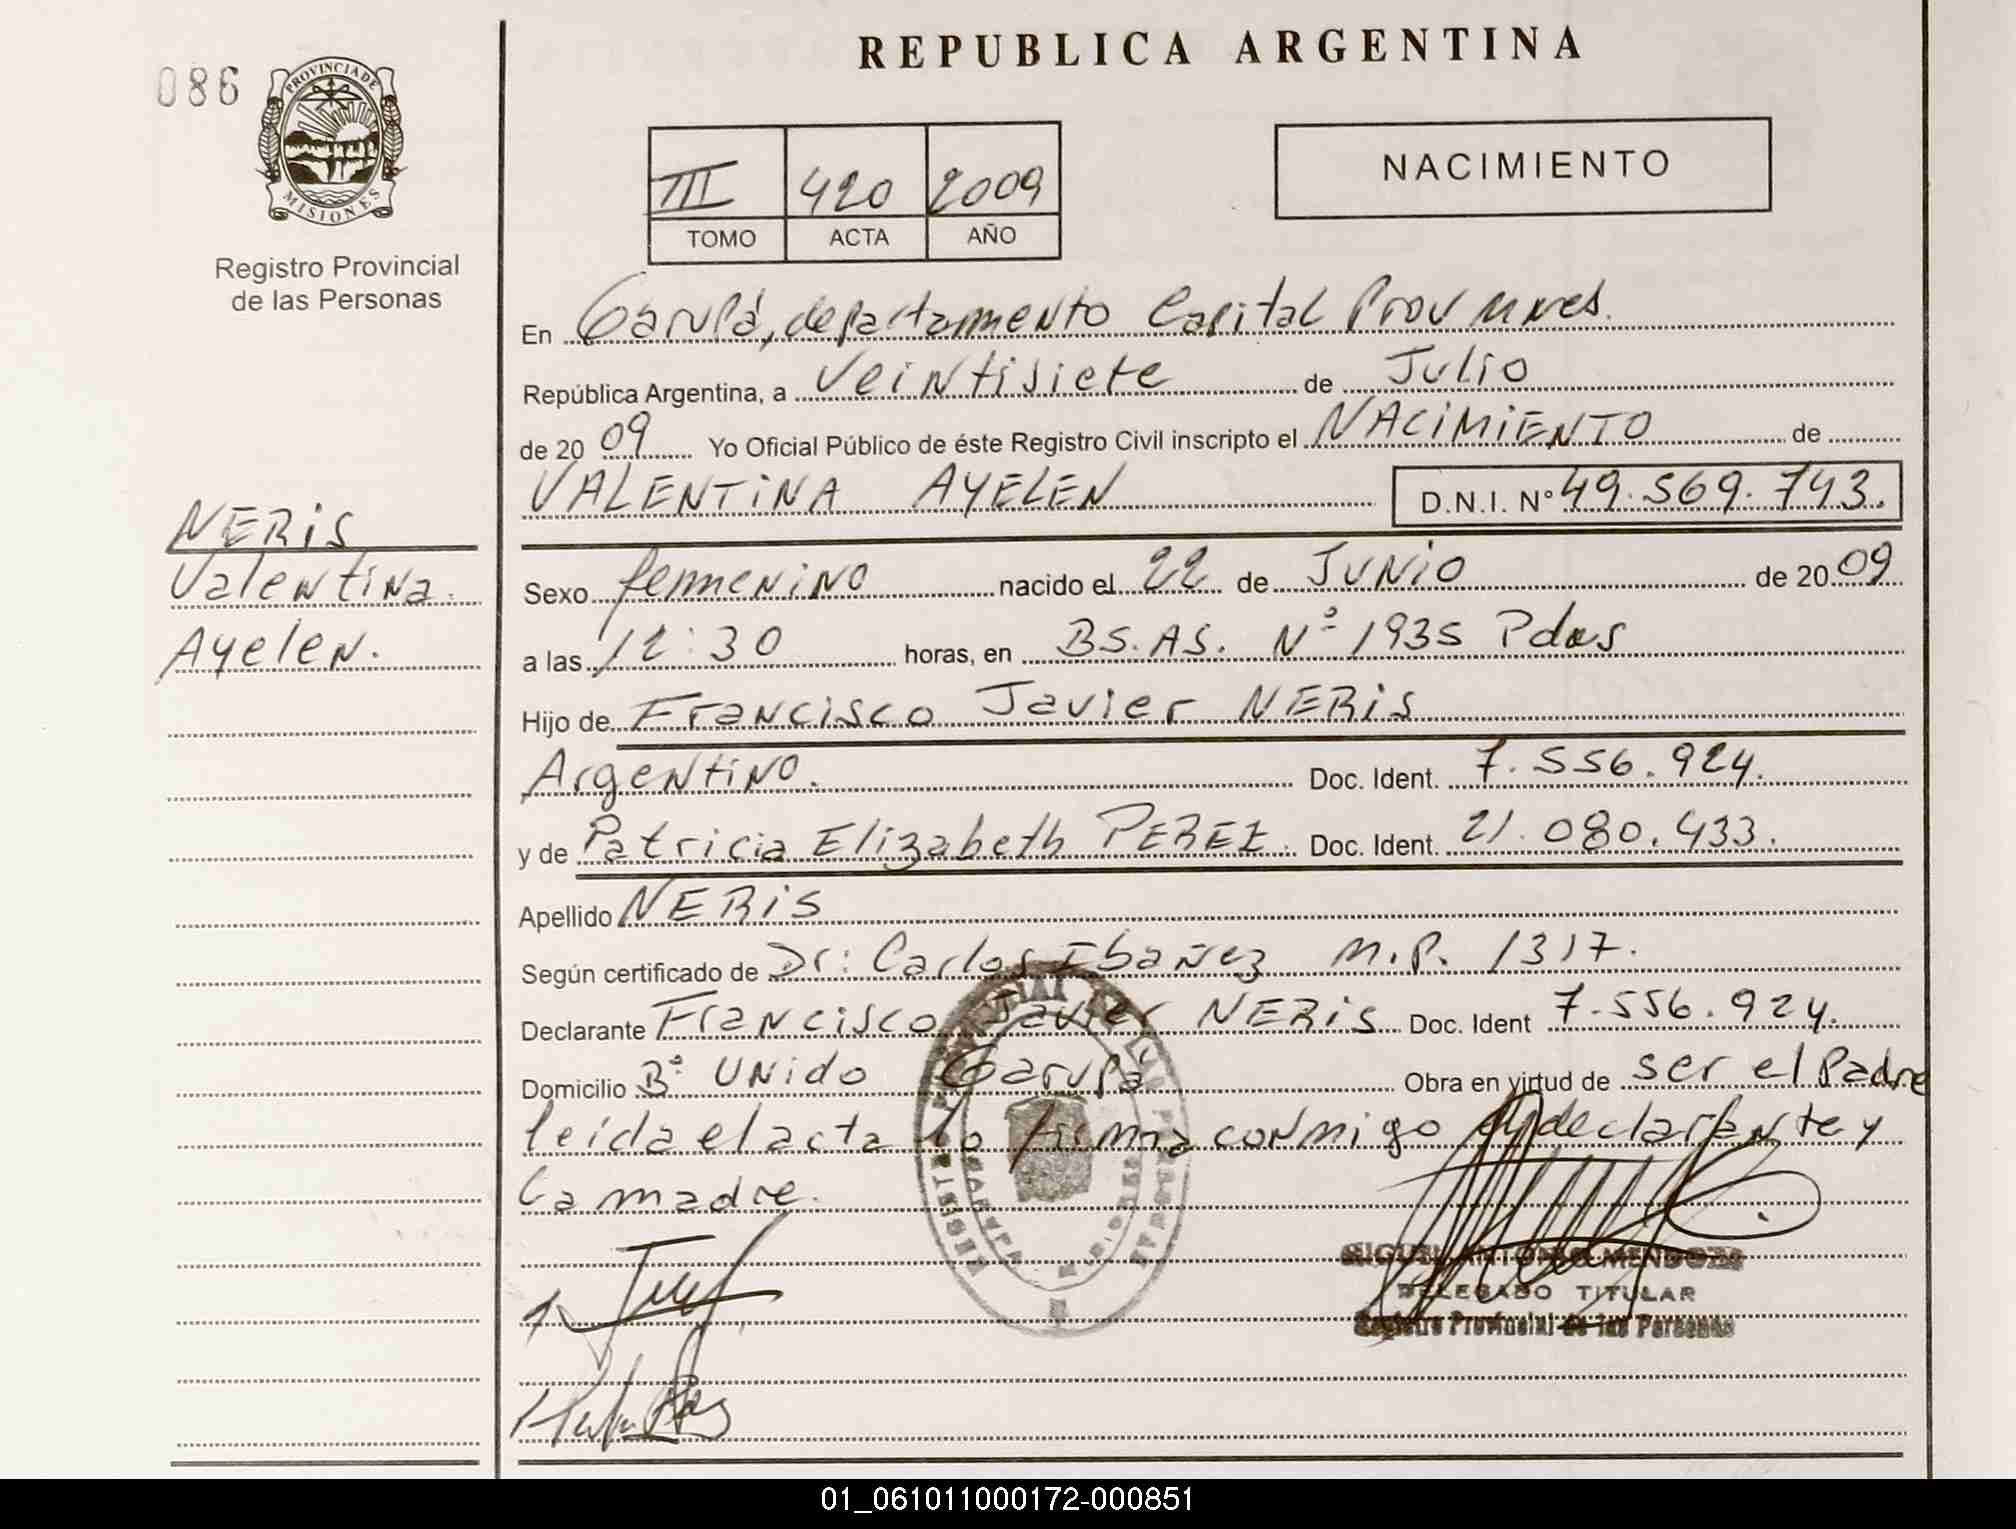 REPUBLICA ARGENTINA
086
PROVINCIA DE
MISIONES
Registro Provincial
de las Personas
III 420 2009
TOMO ACTA AÑO
NACIMIENTO
En Garupá, departamento Capital Prov Mnes.
República Argentina, a Veintisiete de Julio
de 20 09 Yo Oficial Público de éste Registro Civil inscripto el NACIMIENTO de
VALENTINA AYELEN D.N.I. Nº 49.569.743.
NERIS
Valentina.
Ayelen.
Sexo femenino nacido el 22 de JUNIO de 20 09
a las 12:30 horas, en BS.AS. Nº 1935 Pdas
Hijo de Francisco Javier NERIS
Argentino. Doc. Ident. 7.556.924.
y de Patricia Elizabeth PEREZ. Doc. Ident. 21.080.433.
Apellido NERIS
Según certificado de Dr: Carlos Ibañez M.P. 1317.
Declarante Francisco Javier NERIS Doc. Ident 7.556.924.
Domicilio Bº UNido Garupá Obra en virtud de ser el Padre
leída el acta la firma conmigo el declarante y
la madre.
MIGUEL ANTONIO MENDOZA
DELEGADO TITULAR
Registro Provincial de las Personas
01_061011000172-000851